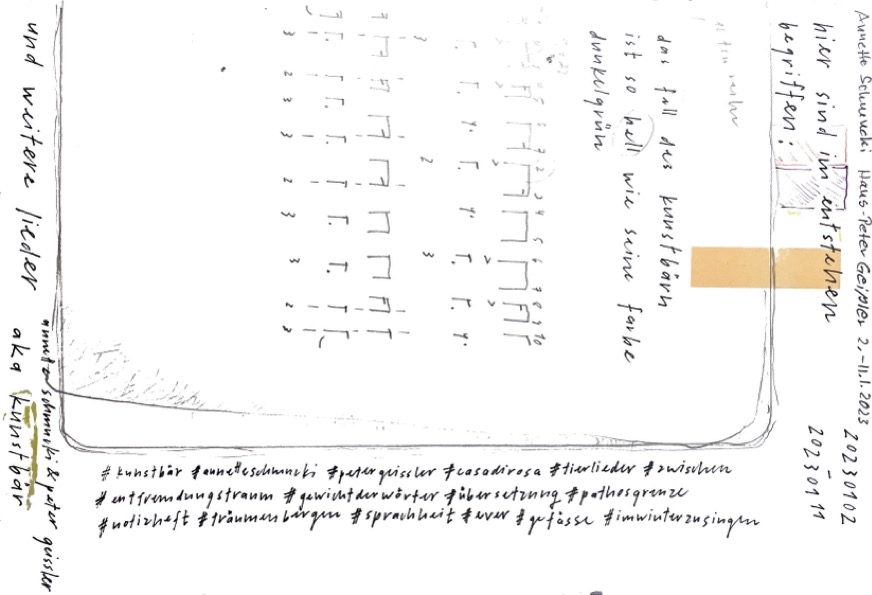 Annette Schmucki Hans-Peter Geißler 2.-11.1.2023
20230102
-
20230111
hier sind im entstehen
begriffen:
das fell des kunstbärn
ist so hell wie seine farbe
dunkelgrün
1 2 3 4 5 6 7 8 9 10
2 3
3 2 3 3 2 3 3 2 2
annette schmucki & peter geissler
und weitere lieder aka kunstbär
#kunstbär #annetteschmucki #petergeissler #casadirosa #tierlieder #zwischen
#entfremdungstraum #gewichtderwörter #übersetzung #pathosgrenze
#notizheft #träumenbergen #sprachheit #ever #gefässe #imwinterzusingen